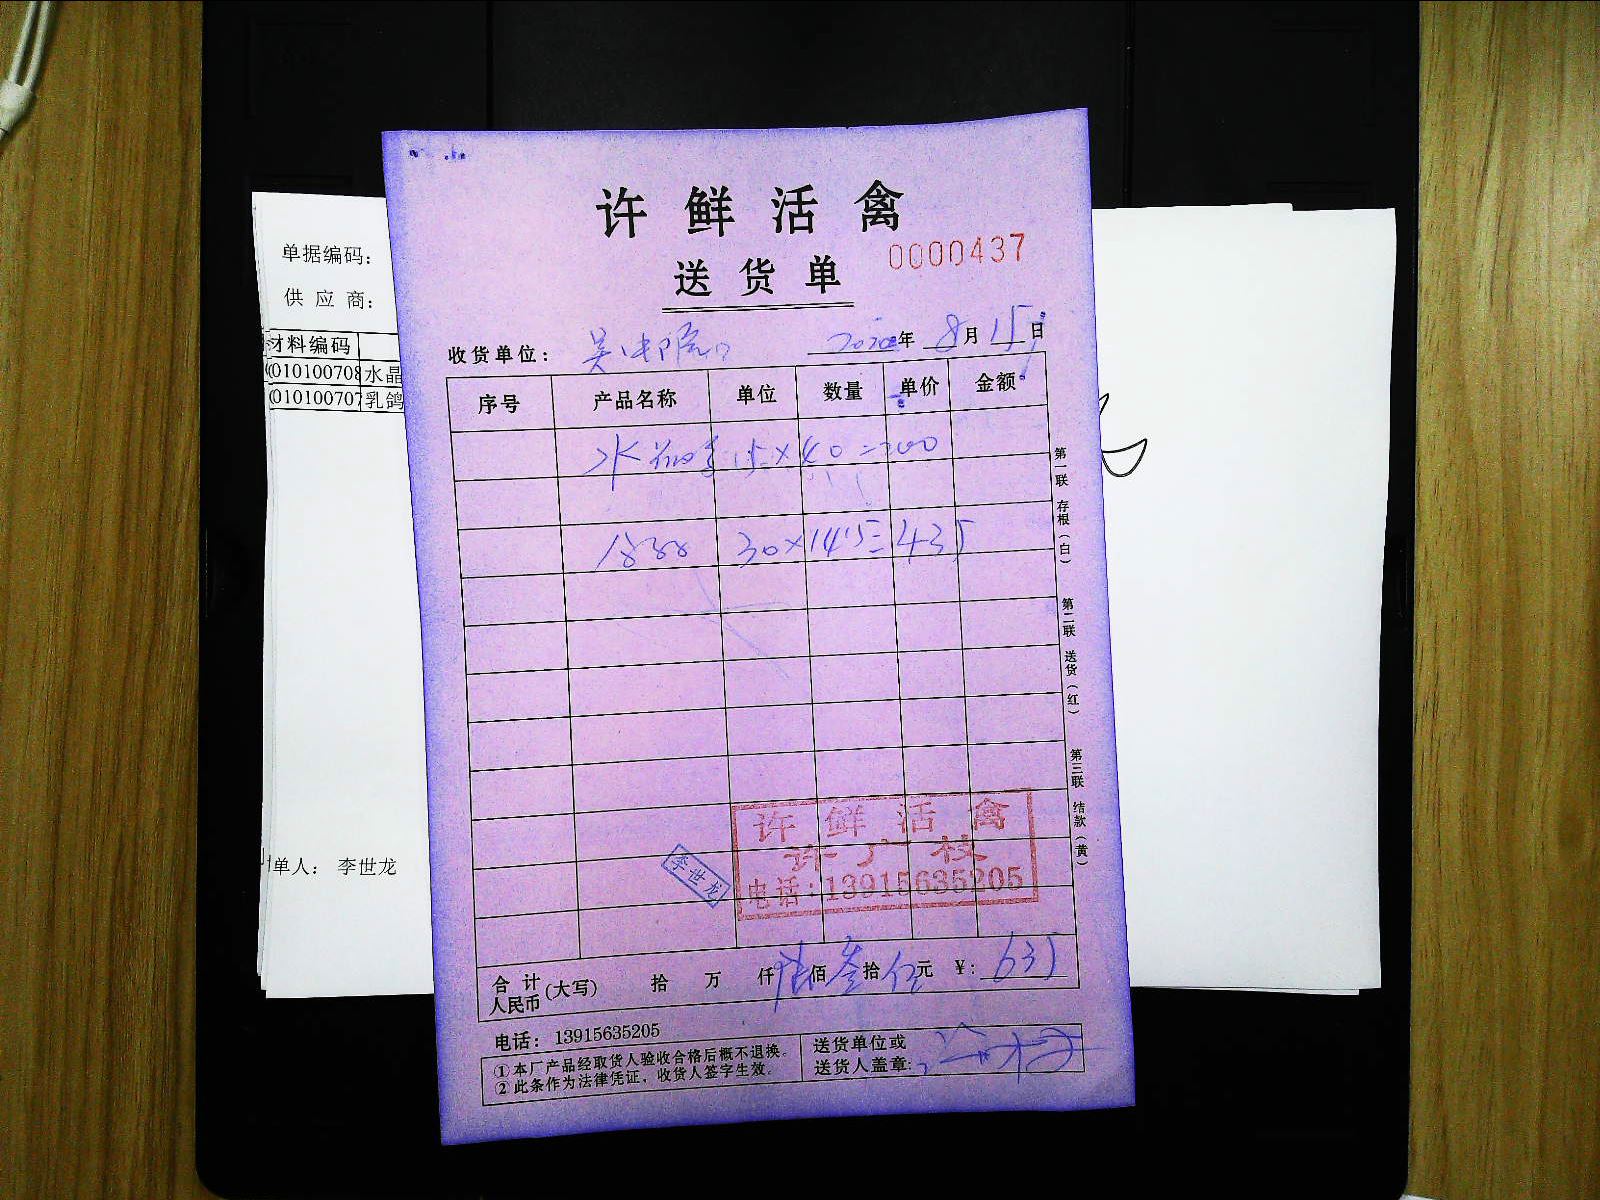 许鲜活禽
送货单
0000437
收货单位： 2020年8月15日
序号 产品名称 单位 数量 单价 金额
×40=200
30×14.5=435
第一联 存根（白）
第二联 送货（红）
第三联 结款（黄）
许鲜活禽
电话：13915635205
李世龙
合计人民币(大写) 拾 万 仟陆佰叁拾伍元 ¥：635
电话： 13915635205
①本厂产品经取货人验收合格后概不退换。
②此条作为法律凭证，收货人签字生效。
送货单位或
送货人盖章：
单据编码：
供应商：
材料编码
010100708 水晶
010100707 乳鸽
单人： 李世龙